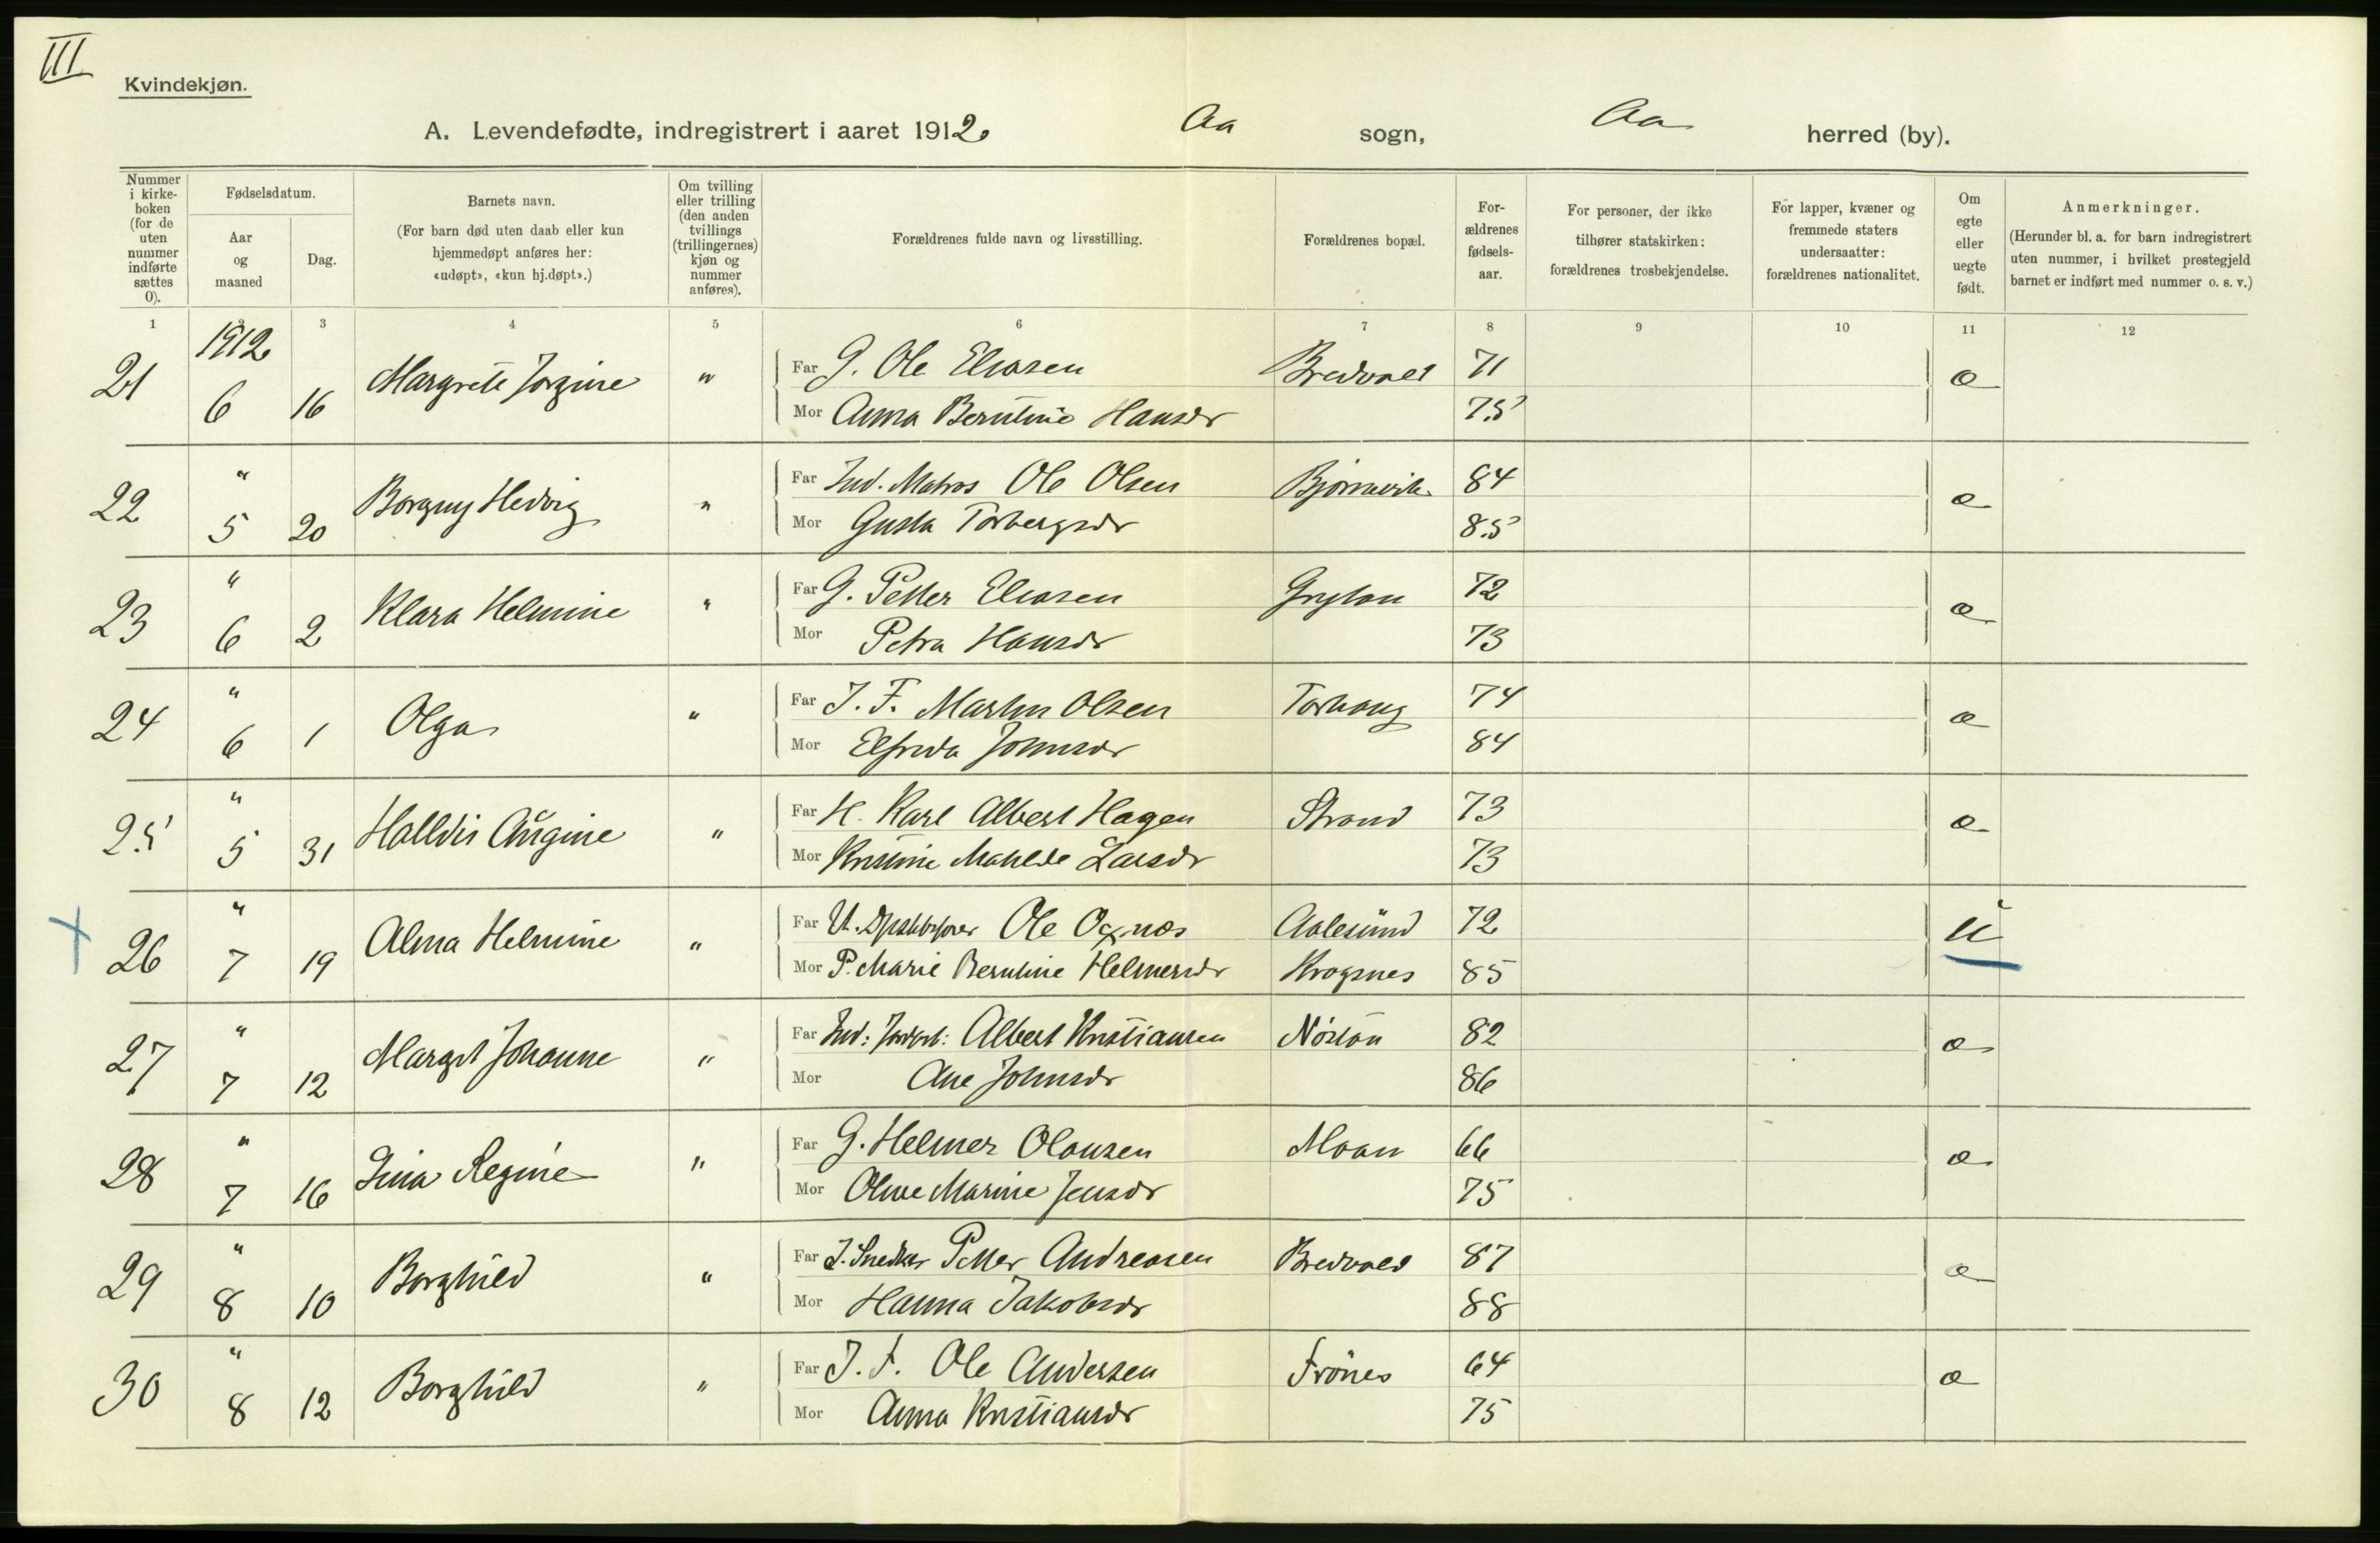 III
Kvindekjøn.
A. Levendefødte, indregistrert i aaret 1912. Aa sogn, Aa herred (by).
Nummer i kirke-boken (for de uten nummer indførte sættes 0).
Fødselsdatum.
Aar og maaned
Dag.
Barnets navn.
(For barn død uten daab eller kun hjemmedøpt anføres her: «udøpt», «kun hj.døpt».)
Om tvilling eller trilling (den anden tvillings (trillingernes) kjøn og nummer anføres).
Forældrenes fulde navn og livsstilling.
Forældrenes bopæl.
For-ældrenes fødsels-aar.
For personer, der ikke tilhører statskirken: forældrenes trosbekjendelse.
For lapper, kvæner og fremmede staters undersaatter: forældrenes nationalitet.
Om egte eller uegte født.
Anmerkninger.
(Herunder bl. a. for barn indregistrert uten nummer, i hvilket prestegjeld barnet er indført med nummer o. s. v.)
1 2 3 4 5 6 7 8 9 10 11 12
1912
21 6 16 Margrete Jorgine " Far G. Ole Eliasen Bredvold 71 æ
Mor Anna Berntine Hansdr 75
22 " 5 20 Borgny Hedvig " Far Ind. Matros Ole Olsen Bjørnevik 84 æ
Mor Gusta Torbergsdr 85
23 " 6 2 Klara Helmine " Far G. Petter Eliasen 72 æ
Mor Petra Hansdr 73
24 " 6 1 Olga " Far J. F. Martin Olsen Torhaug 74 æ
Mor Elfrida Johnsdr 84
25 " 5 31 Halldis Augine " Far H. Karl Albert Hagen Strand 73 æ
Mor Kristine Matilde Larsdr 73
26 " 7 19 Alma Helmine " Far U. Ole Oxnes Aalesund 72 u
Mor P. Marie Berntine Helmersdr Krogsnes 85
27 " 7 12 Margit Johanne " Far Ind: Albert Kristiansen 82 æ
Mor Ane Johnsdr 86
28 " 7 16 Gina Regine " Far G. Helmer Olausen Moan 66 æ
Mor Oline Marine Jensdr 75
29 " 8 10 Borghild " Far J. Snedker Petter Andreasen Bredvold 87 æ
Mor Hanna Jakobsdr 88
30 " 8 12 Borghild " Far J. F. Ole Andersen Frönes 64 æ
Mor Anna Kristiansdr 75